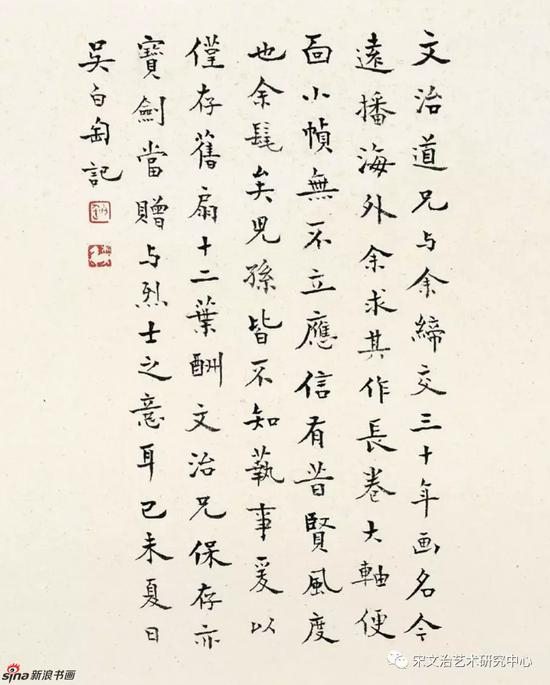 文治道兄与余締交三十年画名今
遠播海外余求其作長卷大軸便
面小幀無不立應信有昔賢風度
也余髦矣児孫皆不知藝事爰以
僅存舊扇十二葉酬文治兄保存亦
寶劍當贈与烈士之意耳己未夏日
吴白匋記
sina新浪书画
宋文治艺术研究中心